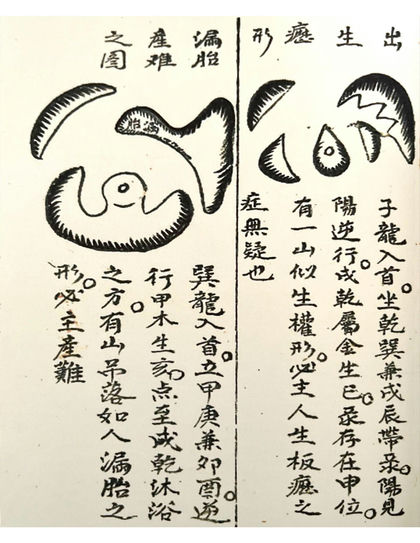 出生癧形
子龍入首。坐乾巽兼戌辰帶录。陽見
陽逆行。戌乾屬金生巳。录存在申位。
有一山似生權形。必主人生板癧之
症無疑也
漏胎
產难
之圖
巽龍入首。立甲庚兼卯酉。逆
行甲木生亥。点至戌乾沐浴
之方有山吊落如人漏胎之
形。必主產難